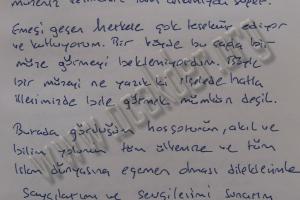 Emeği geçen herkese çok teşekkür ediyor
ve kutluyorum. Bir köyde bu çapta bir
müze görmeyi beklemiyordum. Böyle
bir müzeyi ne yazık ki ilçelerde hatta
illerimizde bile görmek mümkün değil.
Burada gördüğüm hoşgörünün, akıl ve
bilim yolunun tüm ülkemize ve tüm
İslam dünyasına egemen olması dileklerimle
Saygılarımı ve sevgilerimi sunarım